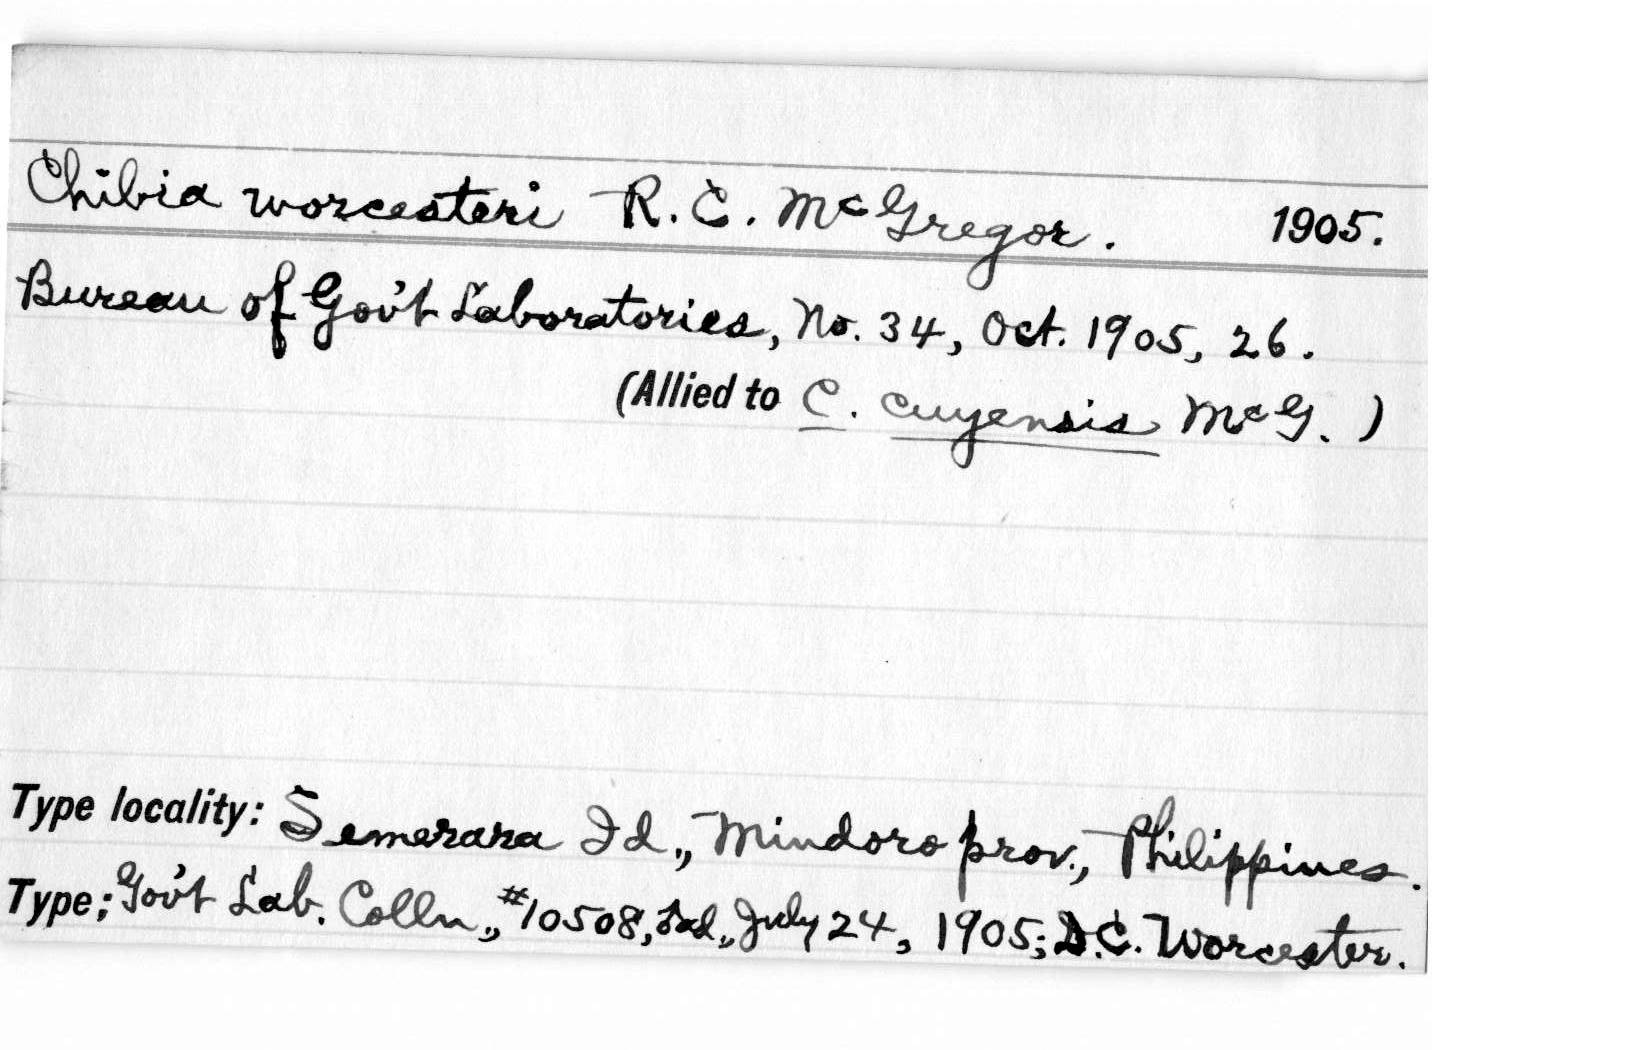 Chibia worcesteri R. C. McGregor. 1905.
Bureau of Gov't Laboratories, No. 34, Oct. 1905, 26.
(Allied to C. cuyensis McG.)
Type locality: Semerara Id., Mindoro prov., Philippines.
Type; Gov't Lab. Colln., #10508, ad., July 24, 1905; D.C. Worcester.